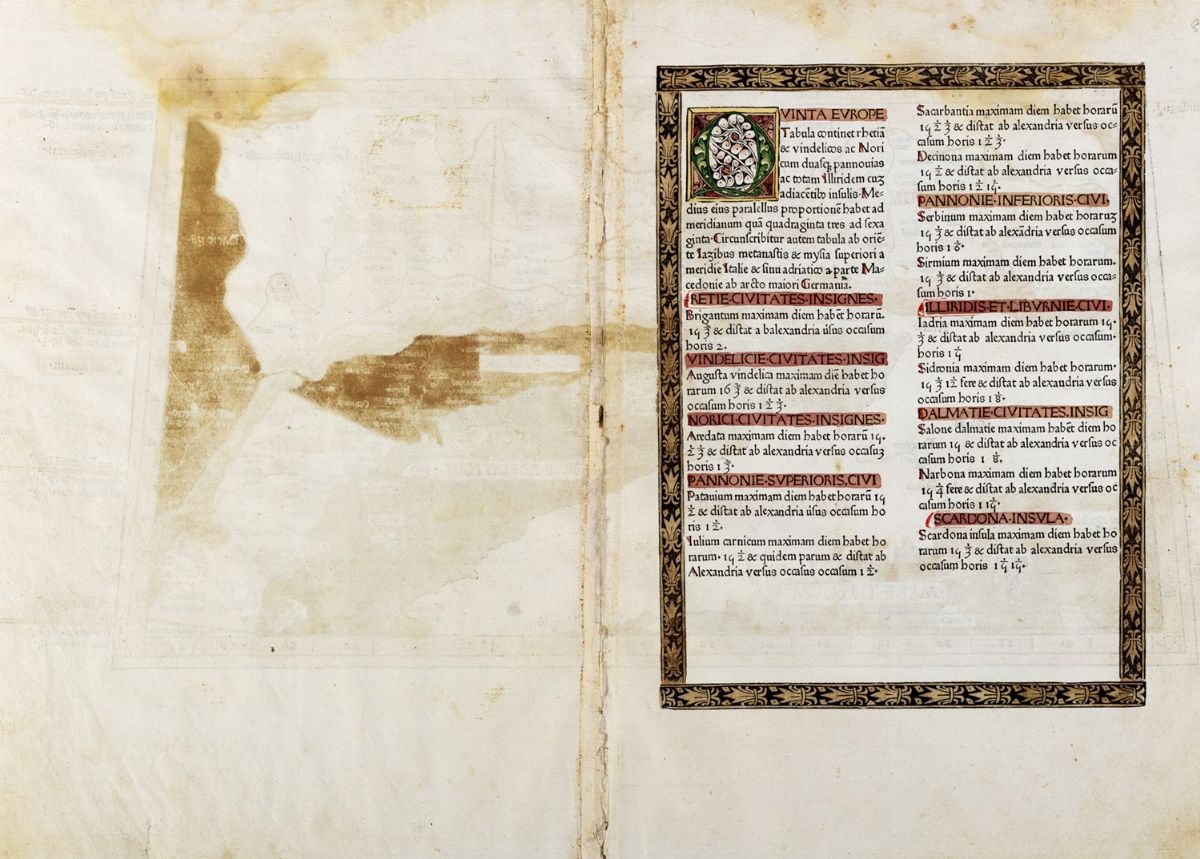 QVINTA EVROPE
Tabula continet rhetiā
& vindelicos ac Nori
cum duasq; pannouias
ac totam Illiridem cuz
adiacētib insulis. Me-
dius eius paralellus proportionē habet ad
meridianum quā quadraginta tres ad sexa
ginta. Circunscribitur autem tabula ab oriē-
te Iazibus metanastis & mysia superiori a
meridie Italie & sinu adriatico a parte Ma-
cedonie ab arcto maiori Germania.
RETIE·CIVITATES·INSIGNES·
Brigantum maximam diem habēt horarū.
19 3 & distat a balexandria ūsus occasum
horis 2.
VINDELICIE·CIVITATES·INSIG
Augusta vindelica maximam diē habet ho
rarum 16 3 & distat ab alexandria versus
occasum horis 1 2 3·
NORICI·CIVITATES·INSIGNES·
Aredata maximam diem habet horarū 19.
2 3 & distat ab alexandria versus occasuz
horis 1 3·
PANNONIE·SVPERIORIS·CIVI
Patauium maximam diem habet horarū 19
2 & distat ab alexandria ūsus occasum ho
ris 1 2·
Iulium carnicum maximam diem habet ho
rarum· 19 2 & quidem parum & distat ab
Alexandria versus occasus occasum 1 2·
Sacarbantia maximam diem habet horarū
19 2 3 & distat ab alexandria versus oc-
casum horis 1 2 3·
Decinona maximam diem habet horarum
19 2 & distat ab alexandria versus occa-
sum horis 1 2 19·
PANNONIE·INFERIORIS·CIVI.
Serbinum maximam diem habet horaruz
19 3 & distat ab alexādria versus occasum
horis 1 6·
Sirmium maximam diem habet horarum.
19 3 & distat ab alexandria versus occa-
sum horis 1·
ILLIRIDIS·ET·LIBVRNIE·CIVI.
Iadria maximam diem habet horarum 19·
3 & distat ab alexandria versus occasum·
horis 1 9
Sidronia maximam diem habet horarum·
19 3 12 fere & distat ab alexandria versus
occasum horis 1 8·
DALMATIE·CIVITATES·INSIG
Salone dalmatie maximam habēt diem ho
rarum 19 & distat ab alexandria versus oc
casum horis 1 8.
Narbona maximam diem habet horarum
19 9 fere & distat ab alexandria versus oc
casum horis 1 19·
SCARDONA·INSVLA·
Scardona insula maximam diem habet ho
rarum 19 3 & distat ab alexandria versus
occasum horis 1 9 19·